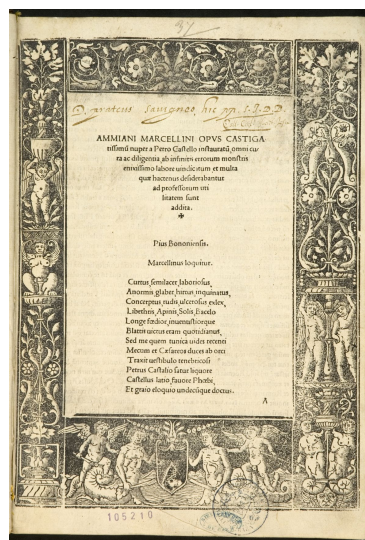 AMMIANI MARCELLINI OPVS CASTIGA
tissimũ nuper a Petro Castello instauratũ, omni cu
ra ac diligentia, ab infinitis errorum monstris
enixissimo labore uindicatum et multa
quæ hactenus desiderabantur
ad professorum uti
litatem sunt
addita.
Pius Bononiensis.
Marcellinus loquitur.
Curtus, semilacer, labotiosus,
Anormis, glaber, hirtus, inquinatus,
Conceptus, rudis, ulcerosus, exlex,
Libethris, Apinis, Solis, Bacelo
Longe fœdior, inuenustiorque
Blattis uictus eram quotidianus,
Sed me quem tunica uides recenti
Mecum et Cæsareos duces ab orci
Traxit uestibulo tenebricosi
Petrus Castalio satur liquore
Castellus latio, fauore Phœbi,
Et graio eloquio undecunque doctus.
A
105210